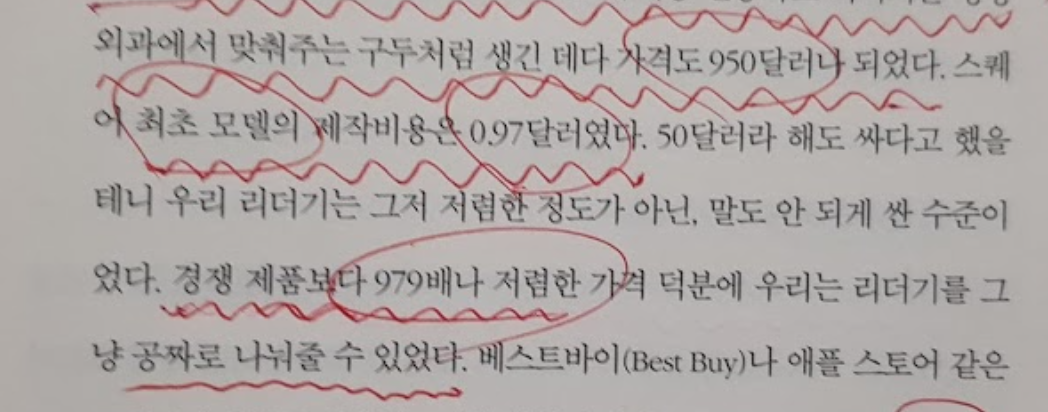 외과에서 맞춰주는 구두처럼 생긴 데다 가격도 950달러나 되었다. 스퀘
어 최초 모델의 제작비용은 0.97달러였다. 50달러라 해도 싸다고 했을
테니 우리 리더기는 그저 저렴한 정도가 아닌, 말도 안 되게 싼 수준이
었다. 경쟁 제품보다 979배나 저렴한 가격 덕분에 우리는 리더기를 그
냥 공짜로 나눠줄 수 있었다. 베스트바이(Best Buy)나 애플 스토어 같은